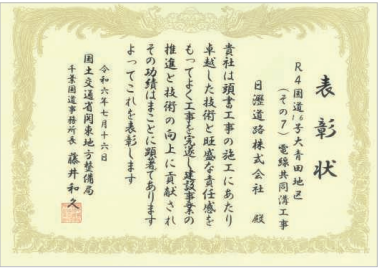 表彰状
R4国道16号大青田地区
(その7)電線共同溝工事
日瀝道路株式会社 殿
貴社は頭書工事の施工にあたり
卓越した技術と旺盛な責任感を
もってよく工事を完遂し建設事業の
推進と技術の向上に貢献され
その功績はまことに顕著であります
よってこれを表彰します
令和六年七月十六日
国土交通省関東地方整備局
千葉国道事務所長 藤井和久